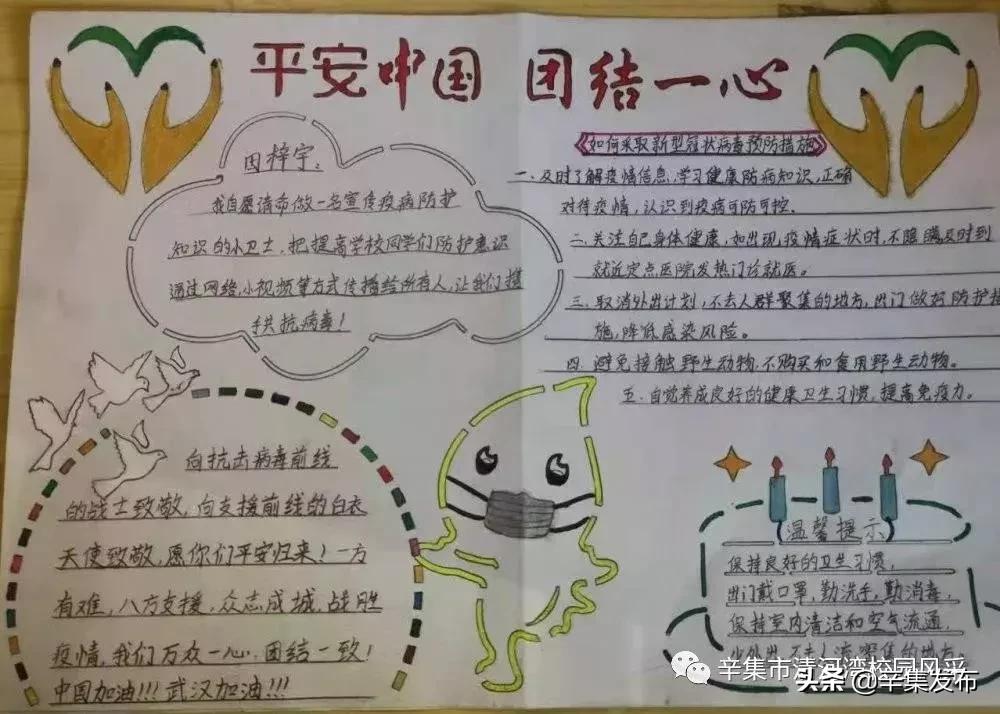 平安中国 团结一心
田梓宇:
我自愿请命做一名宣传疫病防护
知识的小卫士,把提高学校同学们防护意识
通过网络,小视频等方式传播给所有人,让我们携
手共抗病毒!
《如何采取新型冠状病毒预防措施》
一、及时了解疫情信息,学习健康防病知识,正确
对待疫情,认识到疫病可防可控.
二.关注自己身体健康,如出现疫情症状时,不隐瞒及时到
就近定点医院发热门诊就医。
三.取消外出计划,不去人群聚集的地方,出门做好防护措
施,降低感染风险。
四.避免接触野生动物.不购买和食用野生动物。
五.自觉养成良好的健康卫生习惯,提高免疫力。
向抗击病毒前线
的战士致敬,向支援前线的白衣
天使致敬,愿你们平安归来!一方
有难,八方支援,众志成城,战胜
疫情,我们万众一心.团结一致!
中国加油!!!武汉加油!!!
温馨提示
保持良好的卫生习惯,
出门戴口罩,勤洗手,勤消毒,
保持室内清洁和空气流通,
少外出,不去人流密集的地方。
辛集市清河湾校园风采
头条@辛集发布